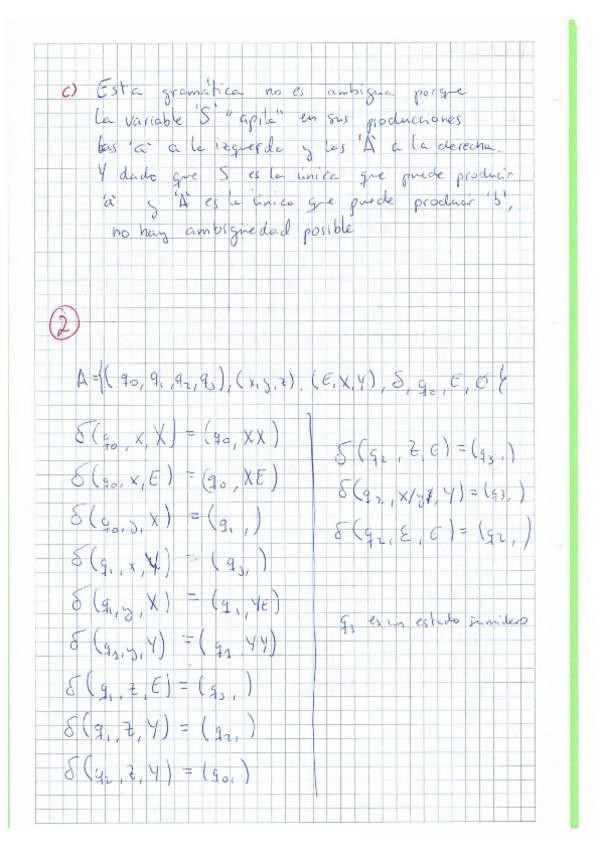 c) Esta gramática no es ambigua porque
la variable 'S' "apila" en sus producciones
las 'a' a la izquerda y las 'A' a la derecha.
Y dado que S es la unica que puede producir
'a' y 'A' es la único que puede producir 'b',
no hay ambigüedad posible
2
A={(q0, q1, q2, q3), (x,y,z), (E,X,Y), δ, q0, E, ∅}
δ(q0, x, X) = (q0, XX)
δ(q0, x, E) = (q0, XE)
δ(q0, y, X) = (q1, )
δ(q1, x, Y) = (q3, )
δ(q1, y, X) = (q1, YE)
δ(q1, y, Y) = (q1, YY)
δ(q1, z, E) = (q3, )
δ(q1, z, Y) = (q2, )
δ(q2, z, Y) = (q0, )
δ(q2, z, E) = (q3, )
δ(q2, x/y, Y) = (q3, )
δ(q2, ε, E) = (q2, )
q3 es un estado sumidero